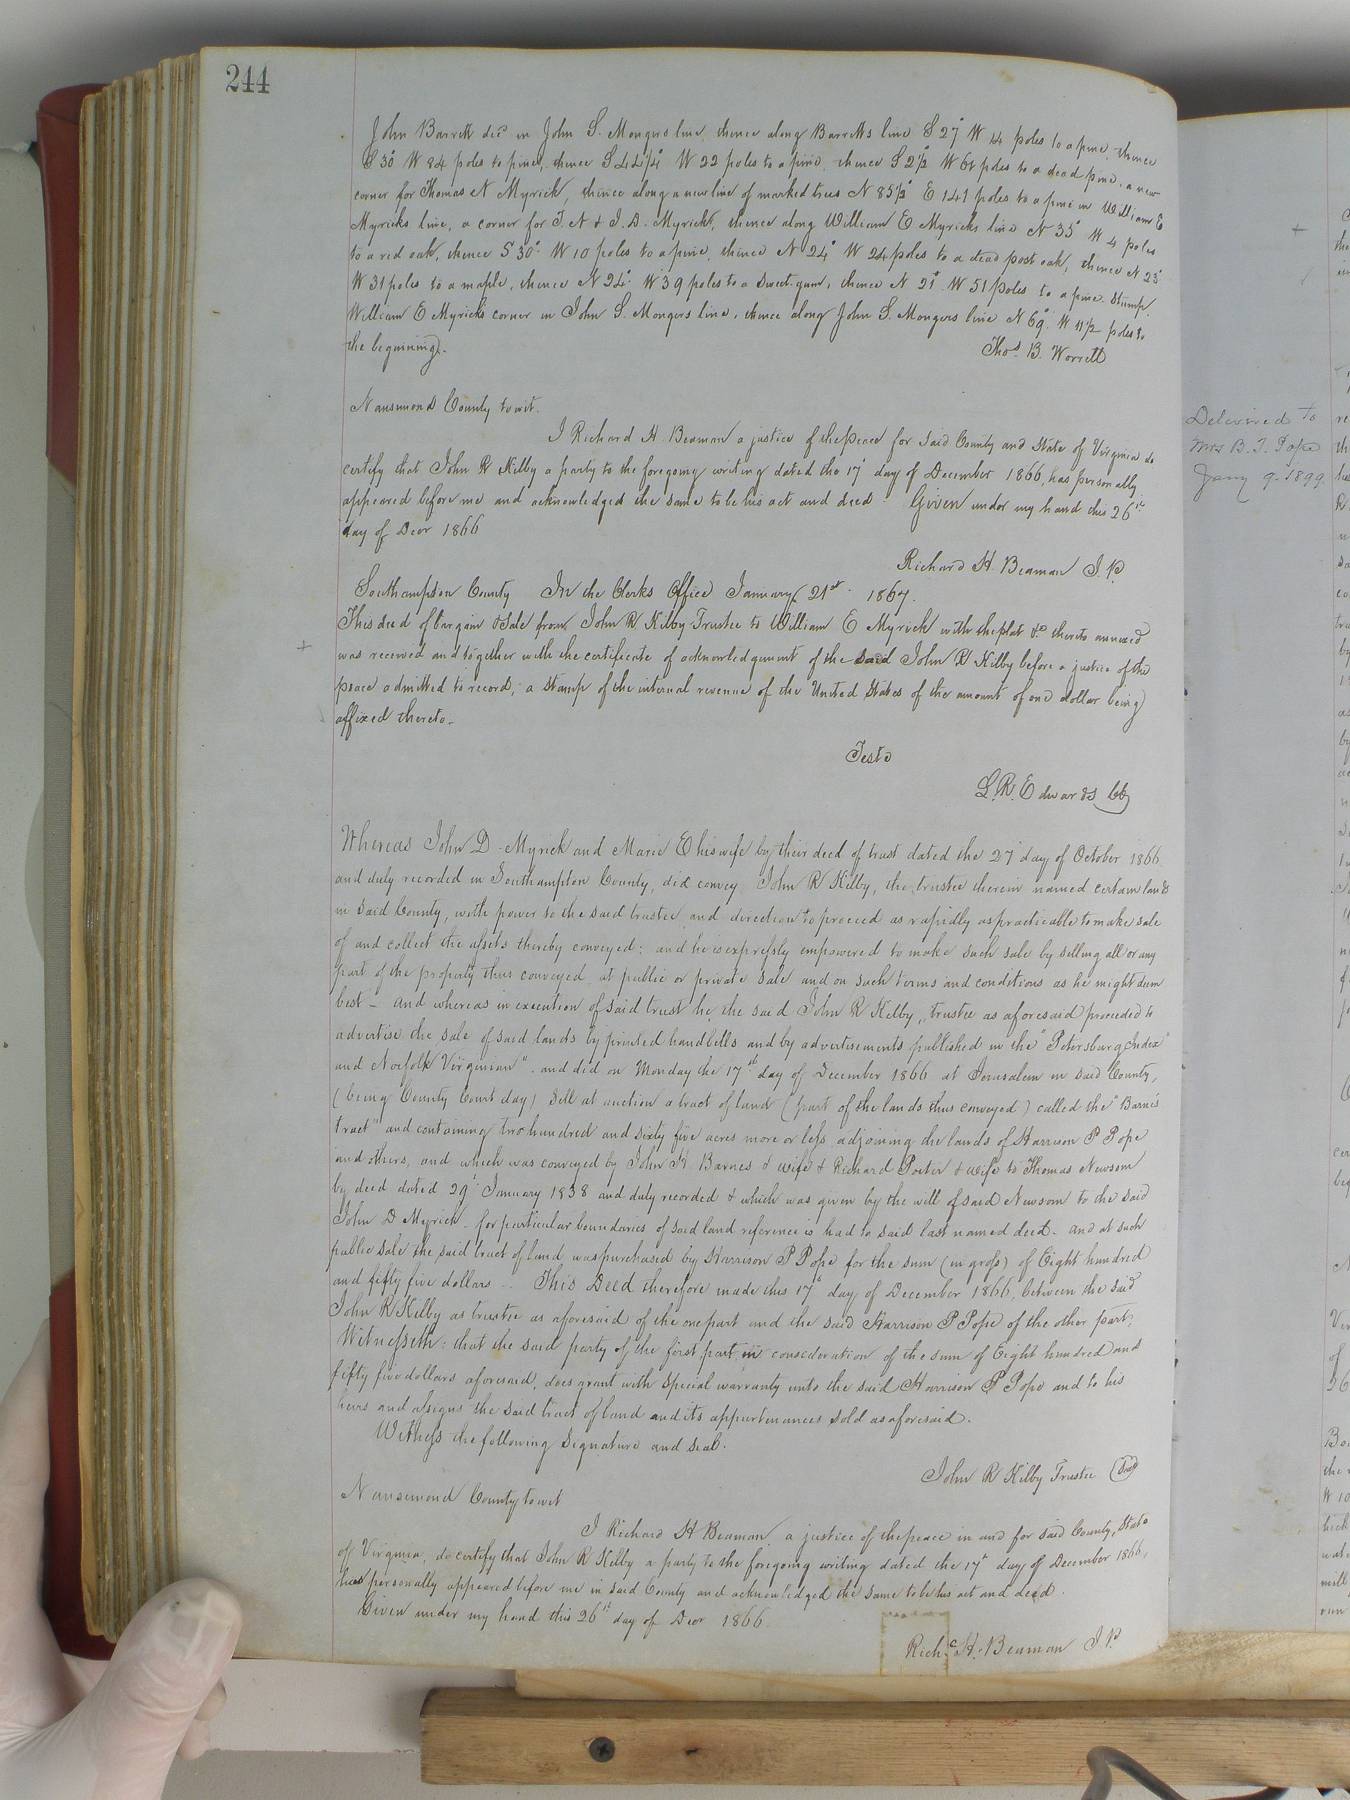 244
John Barrett decd in John S. Mongers line, thence along Barretts line S 27° W 14 poles to a pine, thence
S 30° W 84 poles to pine, thence S 44 1/4° W 22 poles to a pine, thence S 2 1/2° W 61 poles to a dead pine, a new
corner for Thomas N Myrick, thence along a new line of marked trees N 85 1/2° E 141 poles to a pine in William E
Myricks line, a corner for T. N & J. D. Myrick, thence along William E Myricks line N 35° W 4 poles
to a red oak, thence S 30° W 10 poles to a pine, thence N 24° W 24 poles to a dead post oak, thence N 23°
W 31 poles to a maple, thence N 24° W 39 poles to a sweet-gum, thence N 21° W 51 poles to a pine stump,
William E Myricks corner in John S. Mongers line, thence along John S. Mongers line N 69° W 11 1/2 poles to
the beginning.
Thos B. Worrell
Nansemond County to wit.
I Richard H. Beaman a justice of the peace for said County and State of Virginia do
certify that John R Kilby a party to the foregoing writing dated the 17th day of December 1866, has personally
appeared before me and acknowledged the same to be his act and deed. Given under my hand this 26th
day of Decr 1866
Richard H. Beaman J.P.
Southampton County In the Clerks Office January 21st 1867.
This deed of bargain & Sale from John R Kilby Trustee to William E Myrick with the plat &c thereto annexed
was received and together with the certificate of acknowledgment of the said John R Kilby before a justice of the
peace admitted to record, a stamp of the internal revenue of the United States of the amount of one dollar being
affixed thereto.
Teste
L. R. Edwards Clk
Whereas John D. Myrick and Marie E his wife by their deed of trust dated the 27th day of October 1866
and duly recorded in Southampton County, did convey John R Kilby, the trustee therein named certain lands
in said County, with power to the said trustee and direction to proceed as rapidly as practicable to make sale
of and collect the assets thereby conveyed: and he is expressly empowered to make such sale by selling all or any
part of the property thus conveyed at public or private sale and on such terms and conditions as he might deem
best - and whereas in execution of said trust he, the said John R Kilby, trustee as aforesaid proceeded to
advertise the sale of said lands by printed handbills and by advertisements published in the "Petersburg Index"
and Norfolk Virginian", and did on Monday the 17th day of December 1866 at Jerusalem in said County,
(being County Court day) sell at auction a tract of land (part of the lands thus conveyed) called the "Barnes
tract" and containing two hundred and sixty five acres more or less adjoining the lands of Harrison P Pope
and others, and which was conveyed by John H. Barnes & wife & Richard Porter & wife to Thomas Newsom
by deed dated 29th January 1838 and duly recorded & which was given by the will of said Newsom to the said
John D Myrick - for particular boundaries of said land reference is had to said last named deed. and at such
public sale the said tract of land was purchased by Harrison P Pope for the sum (in gross) of Eight hundred
and fifty five dollars - This Deed therefore made this 17th day of December 1866, between the said
John R Kilby as trustee as aforesaid of the one part and the said Harrison P Pope of the other part,
Witnesseth: that the said party of the first part in consideration of the sum of Eight hundred and
fifty five dollars aforesaid, does grant with special warranty unto the said Harrison P Pope and to his
heirs and assigns the said tract of land and its appurtenances sold as aforesaid.
Witness the following signature and seal.
John R Kilby Trustee (Seal)
Nansemond County to wit
I Richard H Beaman, a justice of the peace in and for said County, State
of Virginia, do certify that John R Kilby a party to the foregoing writing dated the 17th day of December 1866,
has personally appeared before me in said County and acknowledged the same to be his act and deed.
Given under my hand this 26th day of Decr 1866.
Richd H. Beaman J.P.
Delivered to
Mrs B. T. Pope
Jany 9-1899